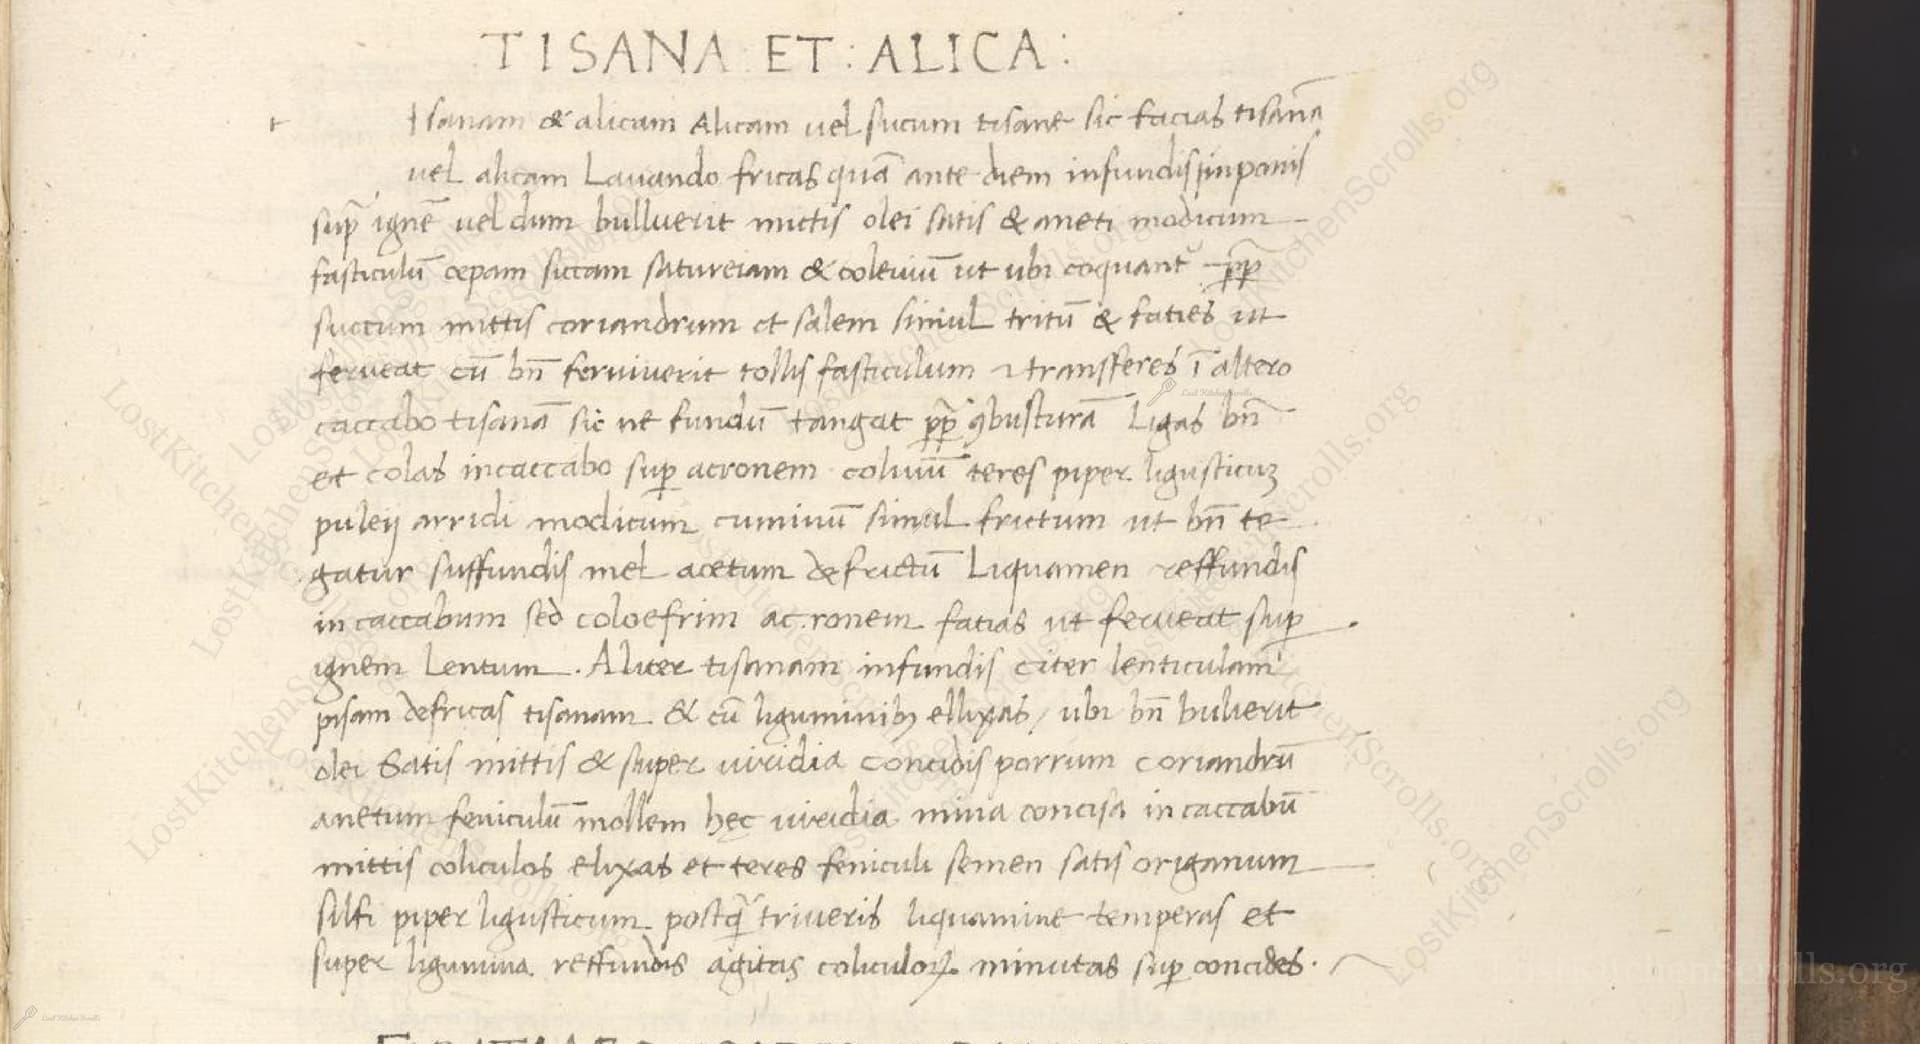 TISANA : ET : ALICA :
Isanam & alicam Alicam vel sucum tisane sic facias tisanā
vel alicam Lavando fricas quā ante diem infundis inponis
sup̄ ignē vel dum bulluerit mictis olei satis & aneti modicum
fasticulū cepam siccam satureiam & coleuiū ut ubi coquant᷑ pp̄
succum mittis coriandrum et salem simul tritū & faties ut
ferveat cū bn̄ ferviverit tollis fasticulum ⁊ transferes ī altero
caccabo tisanā sic ne fundū tangat pp̄ ꝯbusturā Ligas bn̄
et colas incaccabo sup acronem coliuiū teres piper ligusticuꝫ
puleij arridi modicum cuminū simul frictum ut bn̄ te
gatur suffundis mel acetum defrictū Liquamen reffundis
in caccabum sed coloefrim ac ronem fatias ut ferveat sup
ignem Lentum . Aliter tisanam infundis citer lenticulam
pisam defricas tisanam & cū liguminibꝫ ellixas / ubi bn̄ bulierit
olei Satis mittis & super viridia Concidis porrum coriandrū
anetum feniculū mollem hec viridia mina concisa in caccabū
mittis coliculos elixas et teres feniculi semen satis origanum
silfi piper ligusticum postq̄ triveris liquamine temperas et
super ligumina reffundis agitas coliculoꝝ minutas sup concides .
LostKitchenScrolls.org